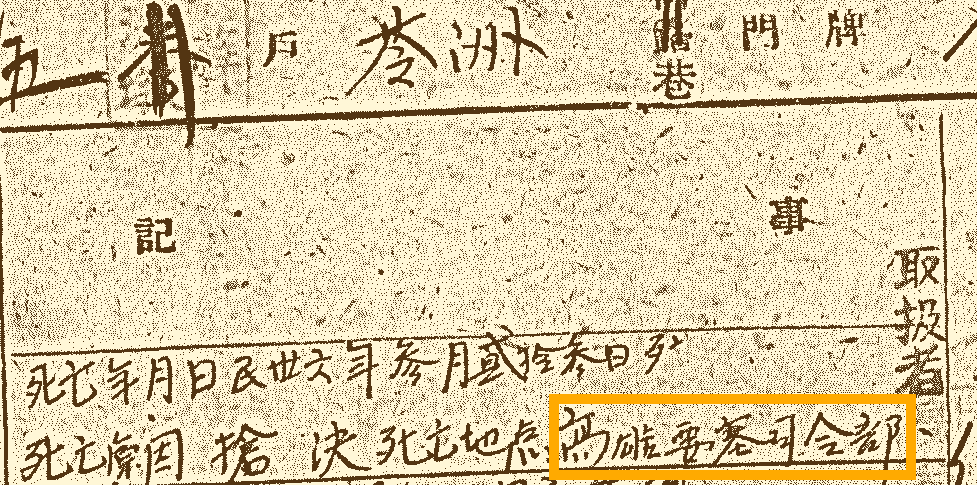 五 戶 苓洲 巷 門牌
記 事
取扱者
死亡年月日民卅六年参月貳拾参日死
死亡原因 搶決 死亡地点高雄要塞司令部